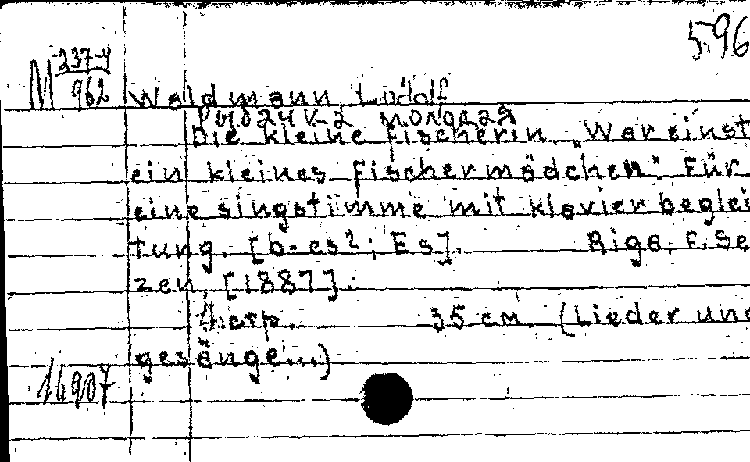 596
M 237-4
962
Waldmann, Ludolf
Рыбачка молодая
Die kleine Fischerin. „War einst
ein kleines Fischermädchen". Für
eine Singstimme mit Klavierbeglei
tung. [b-es²; Es]. Riga, E. Se
zen, [1887].
35 cm (Lieder und
gesänge...)
16907